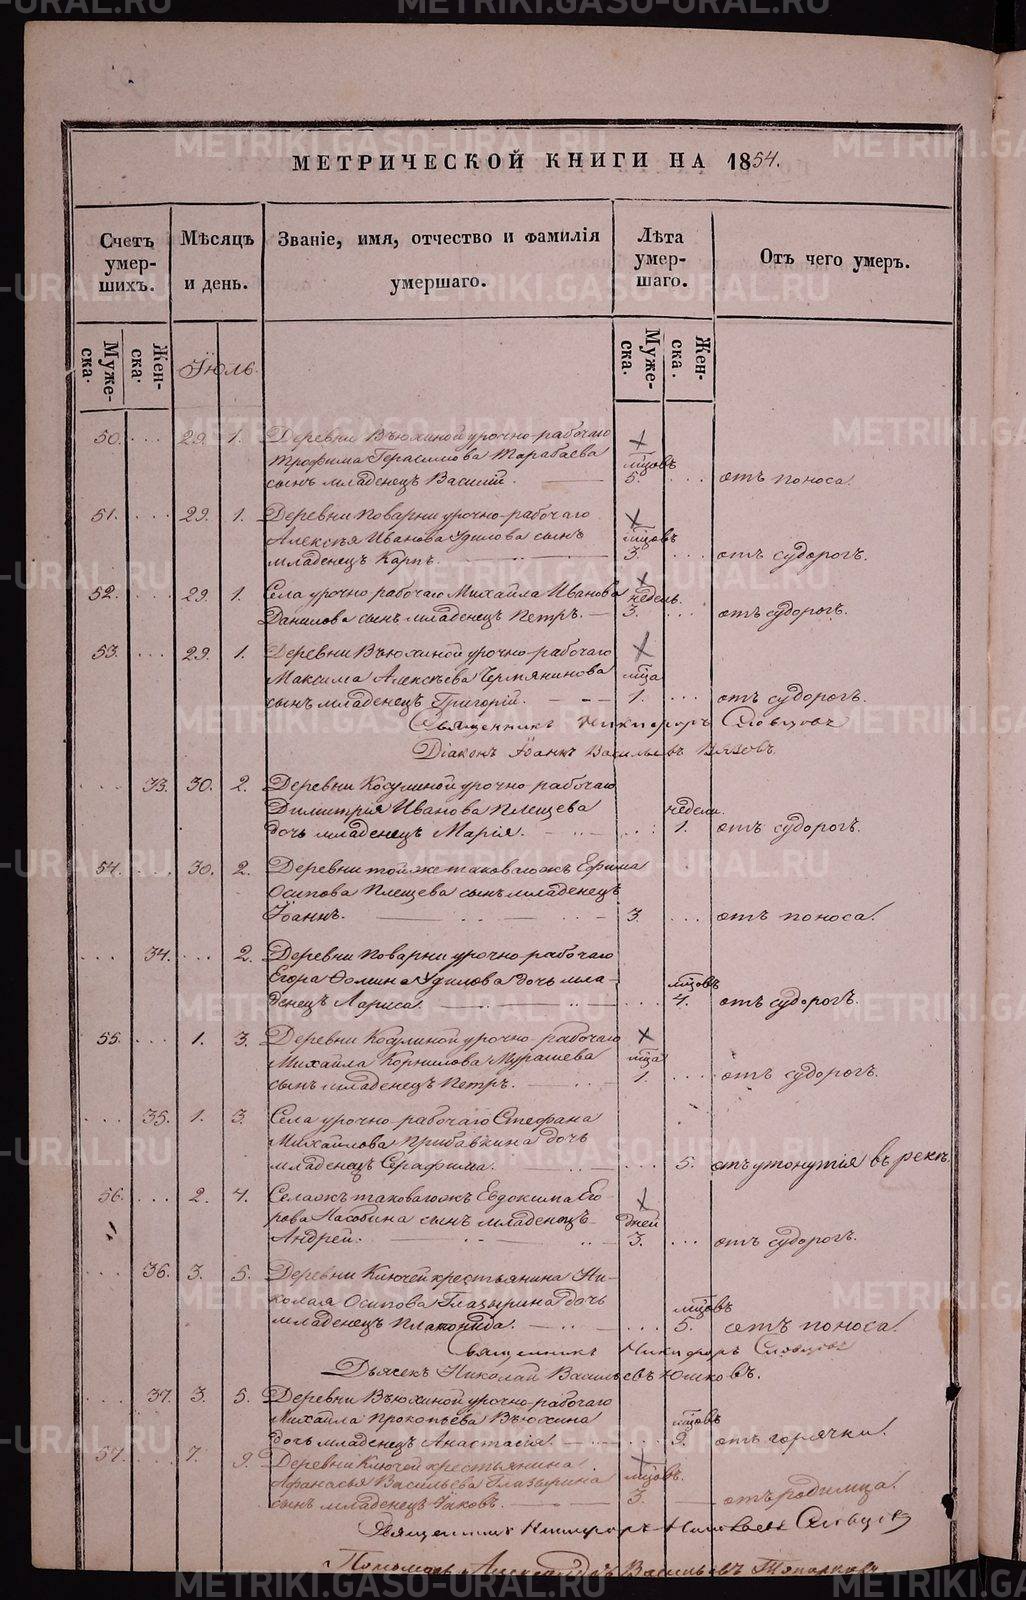 МЕТРИЧЕСКОЙ КНИГИ НА 1854.
Счетъ умер-шихъ.
Мѣсяцъ и день.
Званіе, имя, отчество и фамилія умершаго.
Лѣта умер-шаго.
Отъ чего умеръ.
Муже-ска.
Жен-ска.
Іюль.
Муже-ска.
Жен-ска.
50. ... 29. 1. Деревни Вьюхиной урочно-рабочаго
Трофима Герасимова Тарабаева мцовъ
сынъ младенецъ Василій. 5. ... отъ поноса.
51. ... 29. 1. Деревни Поварни урочно-рабочаго
Алексѣя Иванова Удилова сынъ мцовъ
младенецъ Карпъ. 3. ... отъ судорогъ.
52. ... 29. 1. Села урочно рабочаго Михайла Иванова недѣль.
Данилова сынъ младенецъ Петръ. 3. ... отъ судорогъ.
53. ... 29. 1. Деревни Вьюхиной урочно-рабочаго
Максима Алексѣева Чермянинова мца
сынъ младенецъ Григорій. 1. ... отъ судорогъ.
Священникъ Никифоръ Словцовъ
Діаконъ Іоаннъ Васильевъ Вязовъ.
... 33. 30. 2. Деревни Косулиной урочно-рабочаго
Димитрія Иванова Плещева недели.
дочь младенецъ Марія. ... 1. отъ судорогъ.
54. ... 30. 2. Деревни тойже таковагожъ Ефима
Осипова Плещева сынъ младенецъ
Іоаннъ. 3. ... отъ поноса.
... 34. ... 2. Деревни Поварни урочно-рабочаго
Егора Фомина Удилова дочь мла- мцовъ
денецъ Лариса. ... 4. отъ судорогъ.
55. ... 1. 3. Деревни Косулиной урочно-рабочаго
Михайла Корнилова Мурашева мца
сынъ младенецъ Петръ. 1. ... отъ судорогъ.
... 35. 1. 3. Села урочно-рабочаго Стефана
Михайлова Прибавкина дочь
младенецъ Серафима. ... 5. отъ утонутія въ рекѣ.
56. ... 2. 4. Селажъ таковагожъ Евдокима Его-
рова Насобина сынъ младенецъ дней
Андрей. 3. ... отъ судорогъ.
... 36. 3. 5. Деревни Ключей крестьянина Ни-
колая Осипова Глазырина дочь мцовъ
младенецъ Платонида. ... 5. отъ поноса.
Священникъ Никифоръ Словцовъ
Дьячекъ Николай Васильевъ Юшковъ.
... 37. 3. 5. Деревни Вьюхиной урочно-рабочаго
Михайла Прокопьева Вьюхина мцовъ
дочь младенецъ Анастасія. ... 9. отъ горячки.
57. ... 7. 9. Деревни Ключей крестьянина
Афанасья Васильева Глазырина мцовъ.
сынъ младенецъ Іаковъ. 3. отъ родимца.
Священникъ Никифоръ Словцовъ
Пономарь Александръ Васильевъ Топорковъ
METRIKI.GASO-URAL.RU